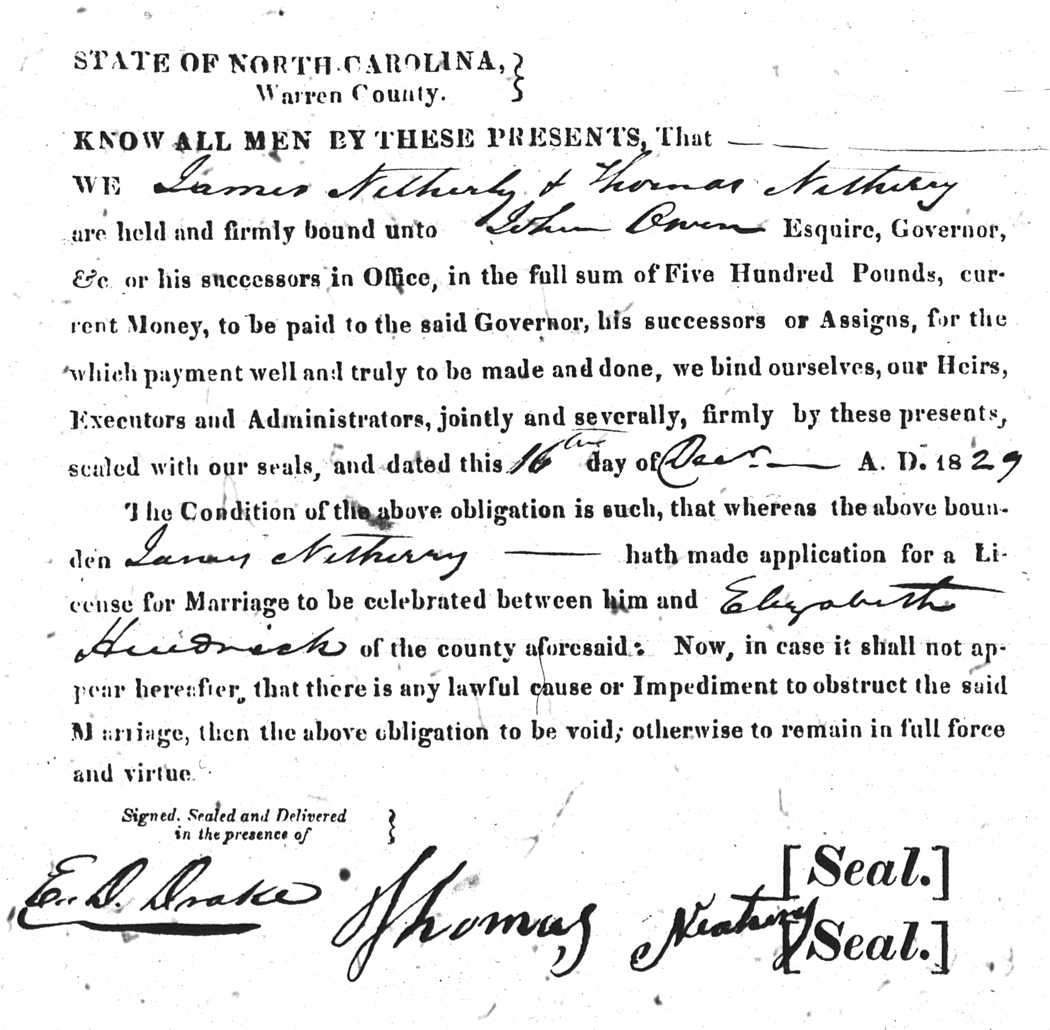 STATE OF NORTH-CAROLINA,
Warren County.
KNOW ALL MEN BY THESE PRESENTS, That
WE James Netherby & Thomas Netherry
are held and firmly bound unto John Owen Esquire, Governor,
&c or his successors in Office, in the full sum of Five Hundred Pounds, cur-
rent Money, to be paid to the said Governor, his successors or Assigns, for the
which payment well and truly to be made and done, we bind ourselves, our Heirs,
Executors and Administrators, jointly and severally, firmly by these presents,
sealed with our seals, and dated this 16th day of Decr. A. D. 1829
The Condition of the above obligation is such, that whereas the above boun-
den James Netherry hath made application for a Li-
cense for Marriage to be celebrated between him and Elizabeth
Hendrick of the county aforesaid: Now, in case it shall not ap-
pear hereafter, that there is any lawful cause or Impediment to obstruct the said
Marriage, then the above obligation to be void; otherwise to remain in full force
and virtue.
Signed, Sealed and Delivered
in the presence of
E. D. Drake Thomas Neathery [Seal.]
[Seal.]